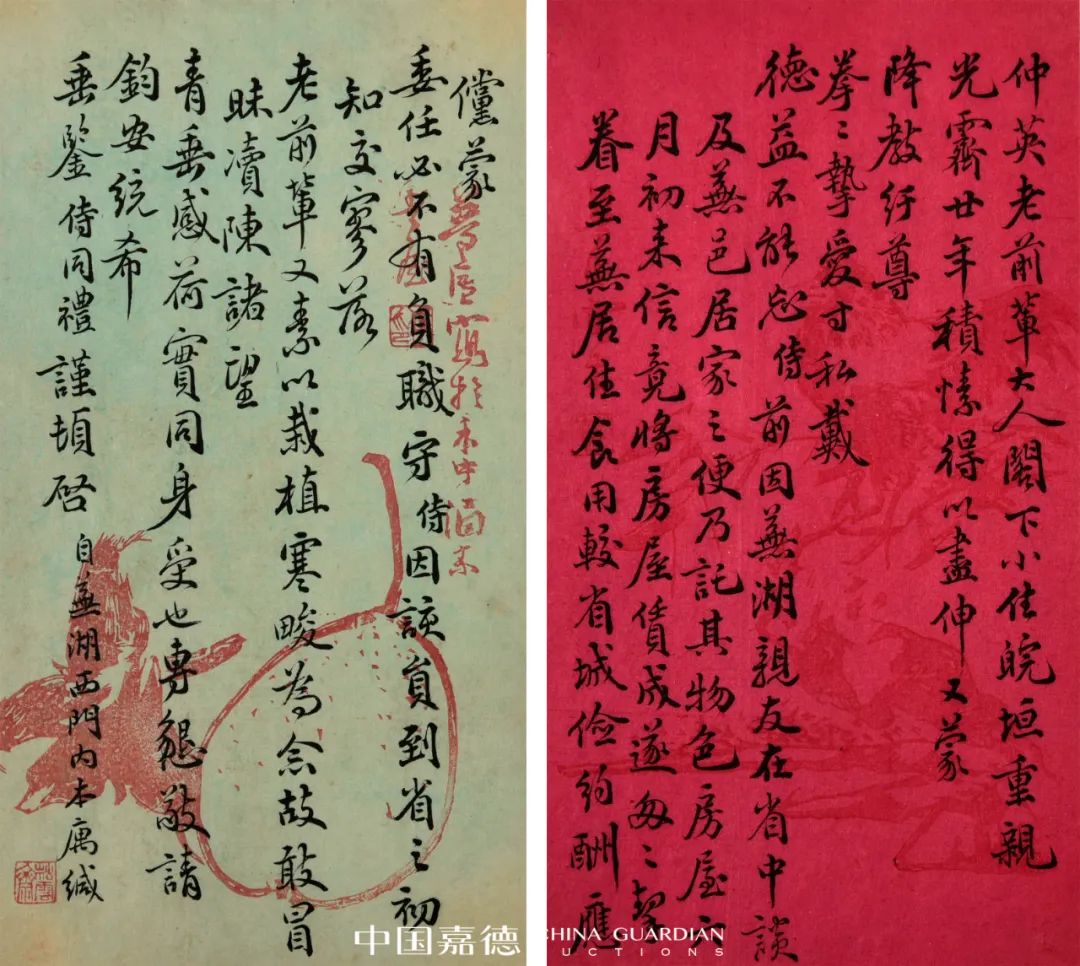 仲英老前輩大人閣下小住皖垣重親
光霽廿年積愫得以盡伸又蒙
降教紆尊
拳〻摯愛寸私戴
德益不能忘侍前因蕪湖親友在省中談
及蕪邑居家之便乃託其物色房屋六
月初来信竟將房屋賃成遂匆〻挈
眷至蕪居住食用較省城儉約酬應
儻蒙
委任必不有負職守侍因該員到省之初
知交寥落
老前輩又素以栽植寒畯為念故敢冒
昧瀆陳諸望
青垂感荷實同身受也專懇敬請
鈞安統希
垂鑒侍同禮謹頓啓
自蕪湖西門内本寓緘
中国嘉德
CHINA GUARDIAN
AUCTIONS